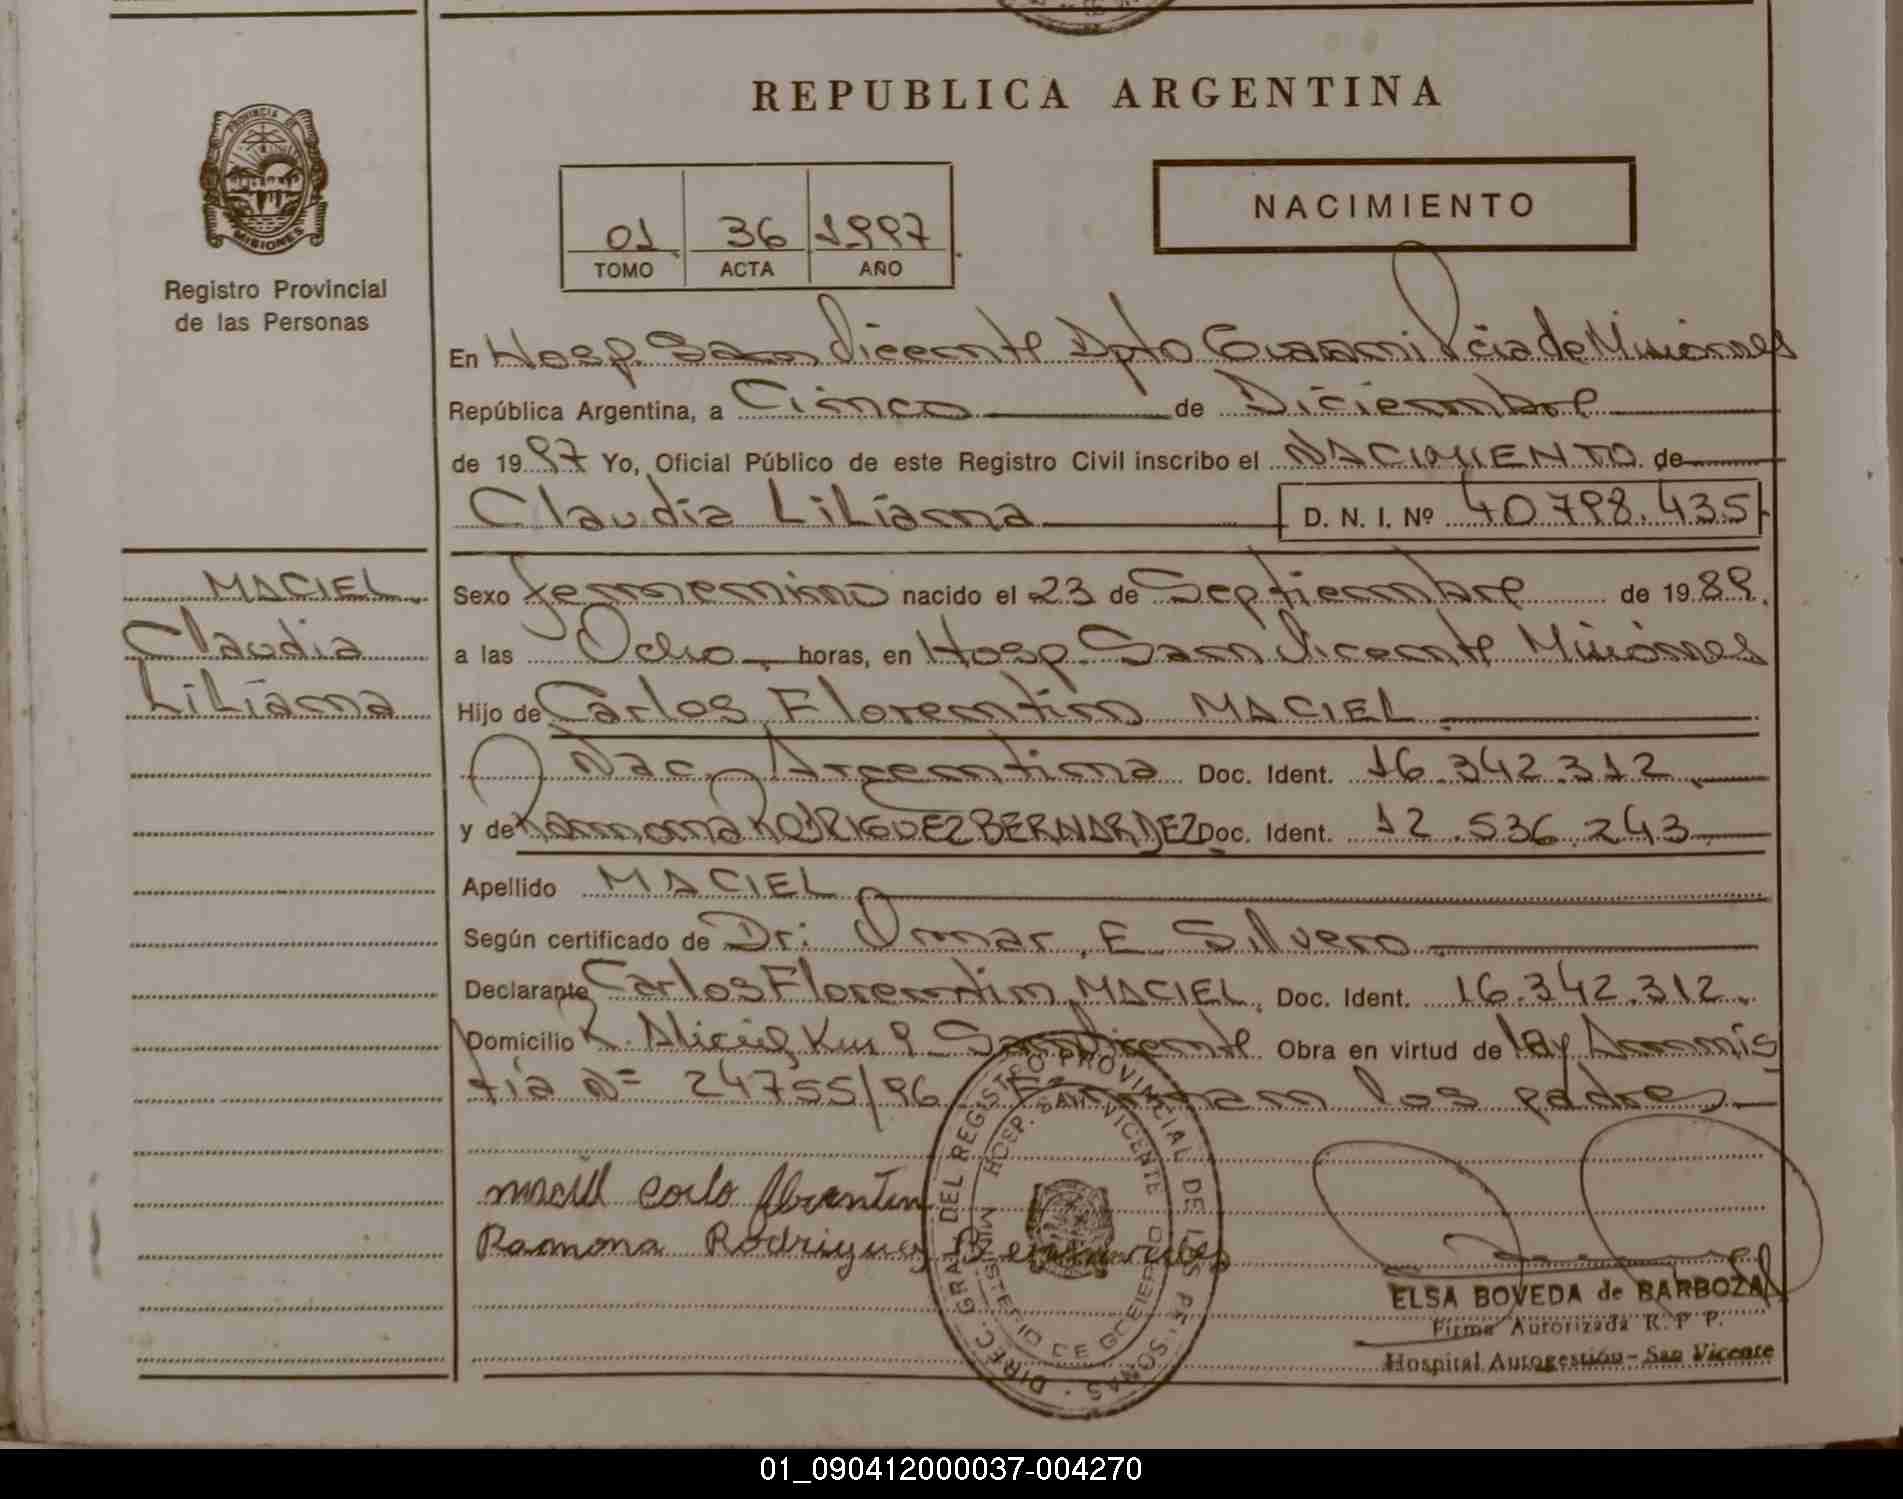 REPUBLICA ARGENTINA
PROVINCIA DE
MISIONES
Registro Provincial
de las Personas
NACIMIENTO
01 36 1997
TOMO ACTA AÑO
En Hosp. San Vicente Dpto Guarani Pcia de Misiones
República Argentina, a Cinco de Diciembre
de 1997 Yo, Oficial Público de este Registro Civil inscribo el NACIMIENTO de
Claudia Liliana D. N. I. Nº 40.798.435
MACIEL
Claudia
Liliana
Sexo femenino nacido el 23 de Septiembre de 1989.
a las Ocho horas, en Hosp. San Vicente Misiones
Hijo de Carlos Florentin MACIEL
Nac. Argentina Doc. Ident. 16.342.312
y de Ramona RODRIGUEZ BERNARDEZ Doc. Ident. 12.536.243
Apellido MACIEL
Según certificado de Dr: Omar E Silvero
Declarante Carlos Florentin MACIEL, Doc. Ident. 16.342.312
Domicilio San Vicente. Obra en virtud de ley Amnis
tía Nº 24755/96. Firman los padres
maciel Carlo florentin
Ramona Rodriguez Bernardes
DIREC. GRAL. DEL REGISTRO PROVINCIAL DE LAS PERSONAS
HOSP. SAN VICENTE
MINISTERIO DE GOBIERNO
ELSA BOVEDA de BARBOZA
Firma Autorizada R. P P.
Hospital Autogestión - San Vicente
01_090412000037-004270